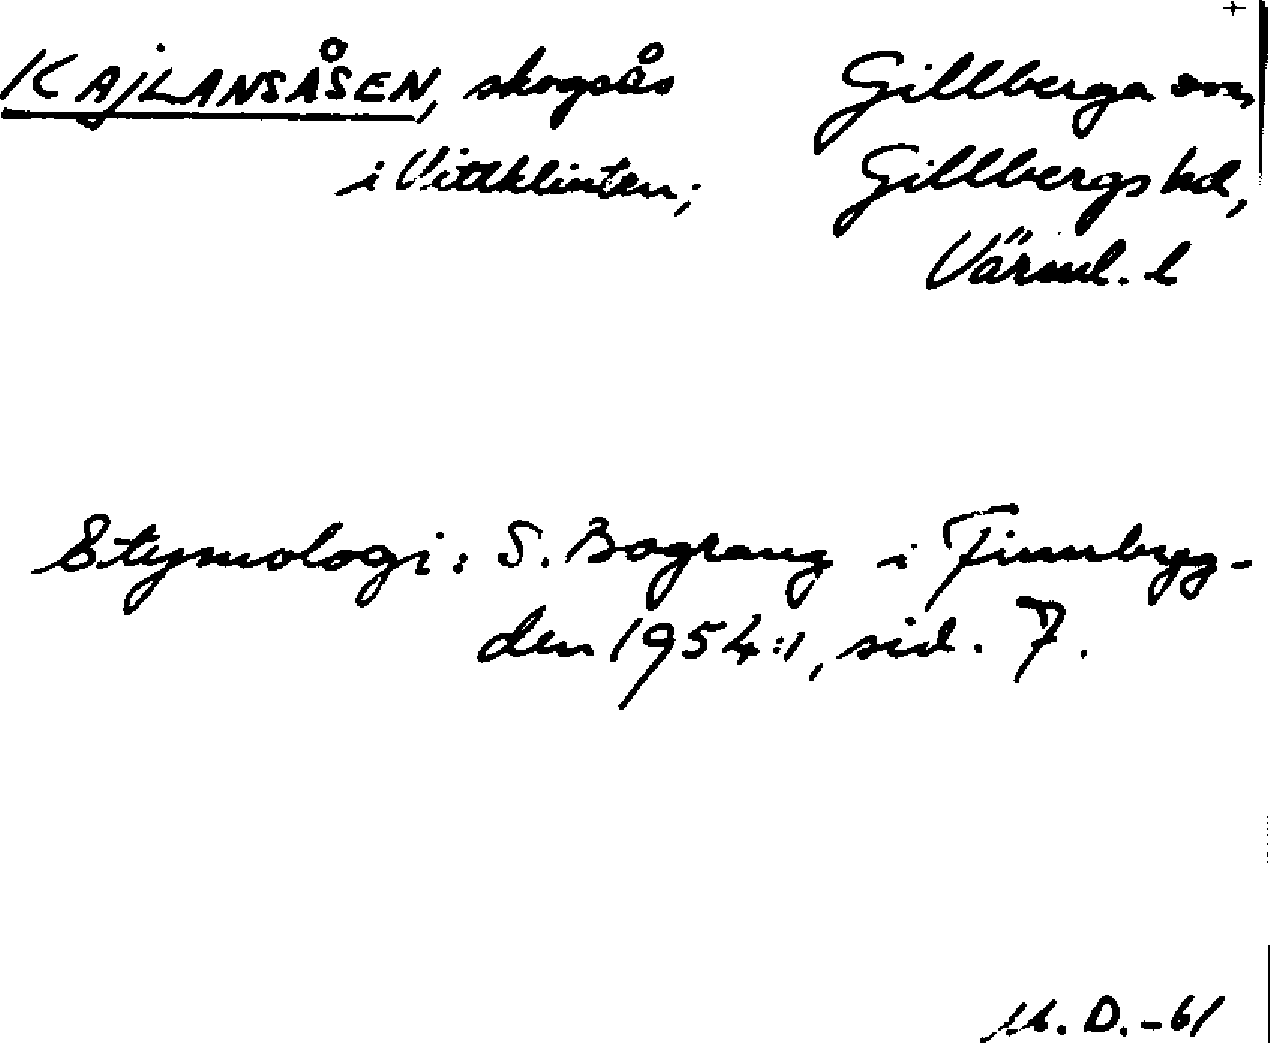 KAJLANSÅSEN, skogsås Gillberga sn,
i Vittklinten; Gillbergs hd,
Värml. l
Etymologi: S. Bograng i Finnbyg-
den 1954:1, sid. 7.
M. D. -61